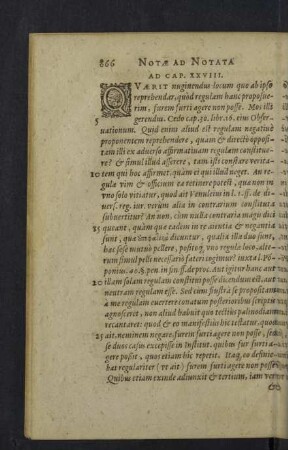 866 NOTÆ AD NOTATA
AD CAP. XXVIII.
QVÆRIT nuginendus locum quo ab ipso
reprehendar, quòd regulam hanc proposue-
rim, furem furti agere non posse. Mos illi
5 gerendus. Credo cap. 30. libr. 26. eius Obser-
uationum. Quid enim aliud est regulam negatiuè
proponentem reprehendere, quam è directò opposi-
tam illi ex aduerso affirmatiuam regulam constitue-
re? & simul illud asserere, tam isti constare verita-
10 tem qui hoc affirmet, quàm ei qui illud neget. An re-
gula vim & officium ea retinere potest, quæ num in
vno solo vitiatur, quod ait Venuleius in l. 1. ff. de di-
uers. reg. iur. verùm alia in contrarium constituta
subuertitur? An non, cùm nulla contraria magis dici
15 queant, quàm quæ eadem in re aientia & negantia
sunt, quæ dicuntur, qualia illa duo sunt,
hac sese mutuò pellere, positoq́; vno regulæ loco, alte-
rum simul pelli necessariò fateri cogimur? iuxta l. Po-
ponius. 40. §. pen. in fi. ff. de proc. Aut igitur hanc aut
20 illam falsam regulam constitui posse dicendum est, aut
neutram regulam esse. Sed eum frustrà se proposit am
à me regulam euertere conatum posterioribus scriptis
agnoscerit, non aliud habuit quo tectius palinodiam
recantaret: quod & eo manifestius hic testatur, quòd
25 ait, neminem negare, furem furti agere non posse, sed
se duos casus excepisse in Institut. quibus fur furti a-
gere possit, quos etiam hîc repetit. Itaq. eo definie-
bat regulariter (vt ait) furem furti agere non posse.
Quibus etiam exinde adiunxit & tertium, iam ver